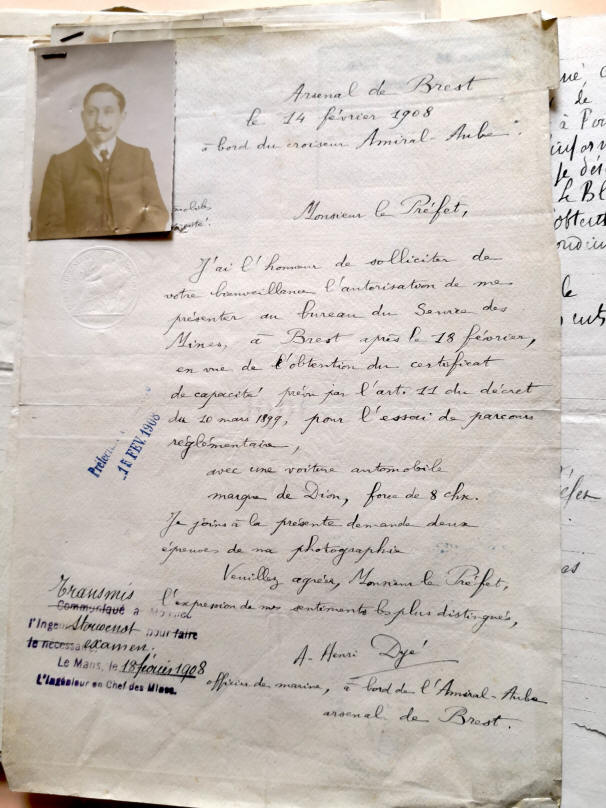 Arsenal de Brest
le 14 février 1908
à bord du croiseur Amiral-Aube.
Monsieur le Préfet,
J'ai l'honneur de solliciter de
votre bienveillance l'autorisation de me
présenter au bureau du Service des
Mines, à Brest après le 18 février,
en vue de l'obtention du certificat
de capacité prévu par l'art. 11 du décret
du 10 mars 1899, pour l'essai de parcours
réglementaire,
avec une voiture automobile
marque de Dion, force de 8 chx.
Je joins à la présente demande deux
épreuves de ma photographie
Veuillez agréer, Monsieur le Préfet,
l'expression de mes sentiments les plus distingués,
A-Henri Dyé
officier de marine, à bord de l'Amiral-Aube
arsenal de Brest.
15 FEV. 1908
Transmis
Communiqué à
l'Ingén pour faire
le nécessaire examen.
Le Mans, le 18 février 1908
L'Ingénieur en Chef des Mines.